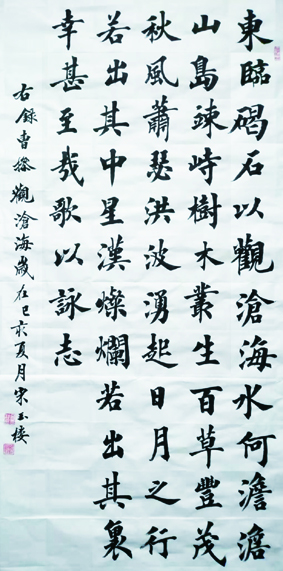 東臨碣石以觀滄海水何澹澹
山島竦峙樹木叢生百草豐茂
秋風蕭瑟洪波湧起日月之行
若出其中星漢燦爛若出其裏
幸甚至哉歌以詠志
右錄曹操觀滄海歲在己亥夏月宋玉樓